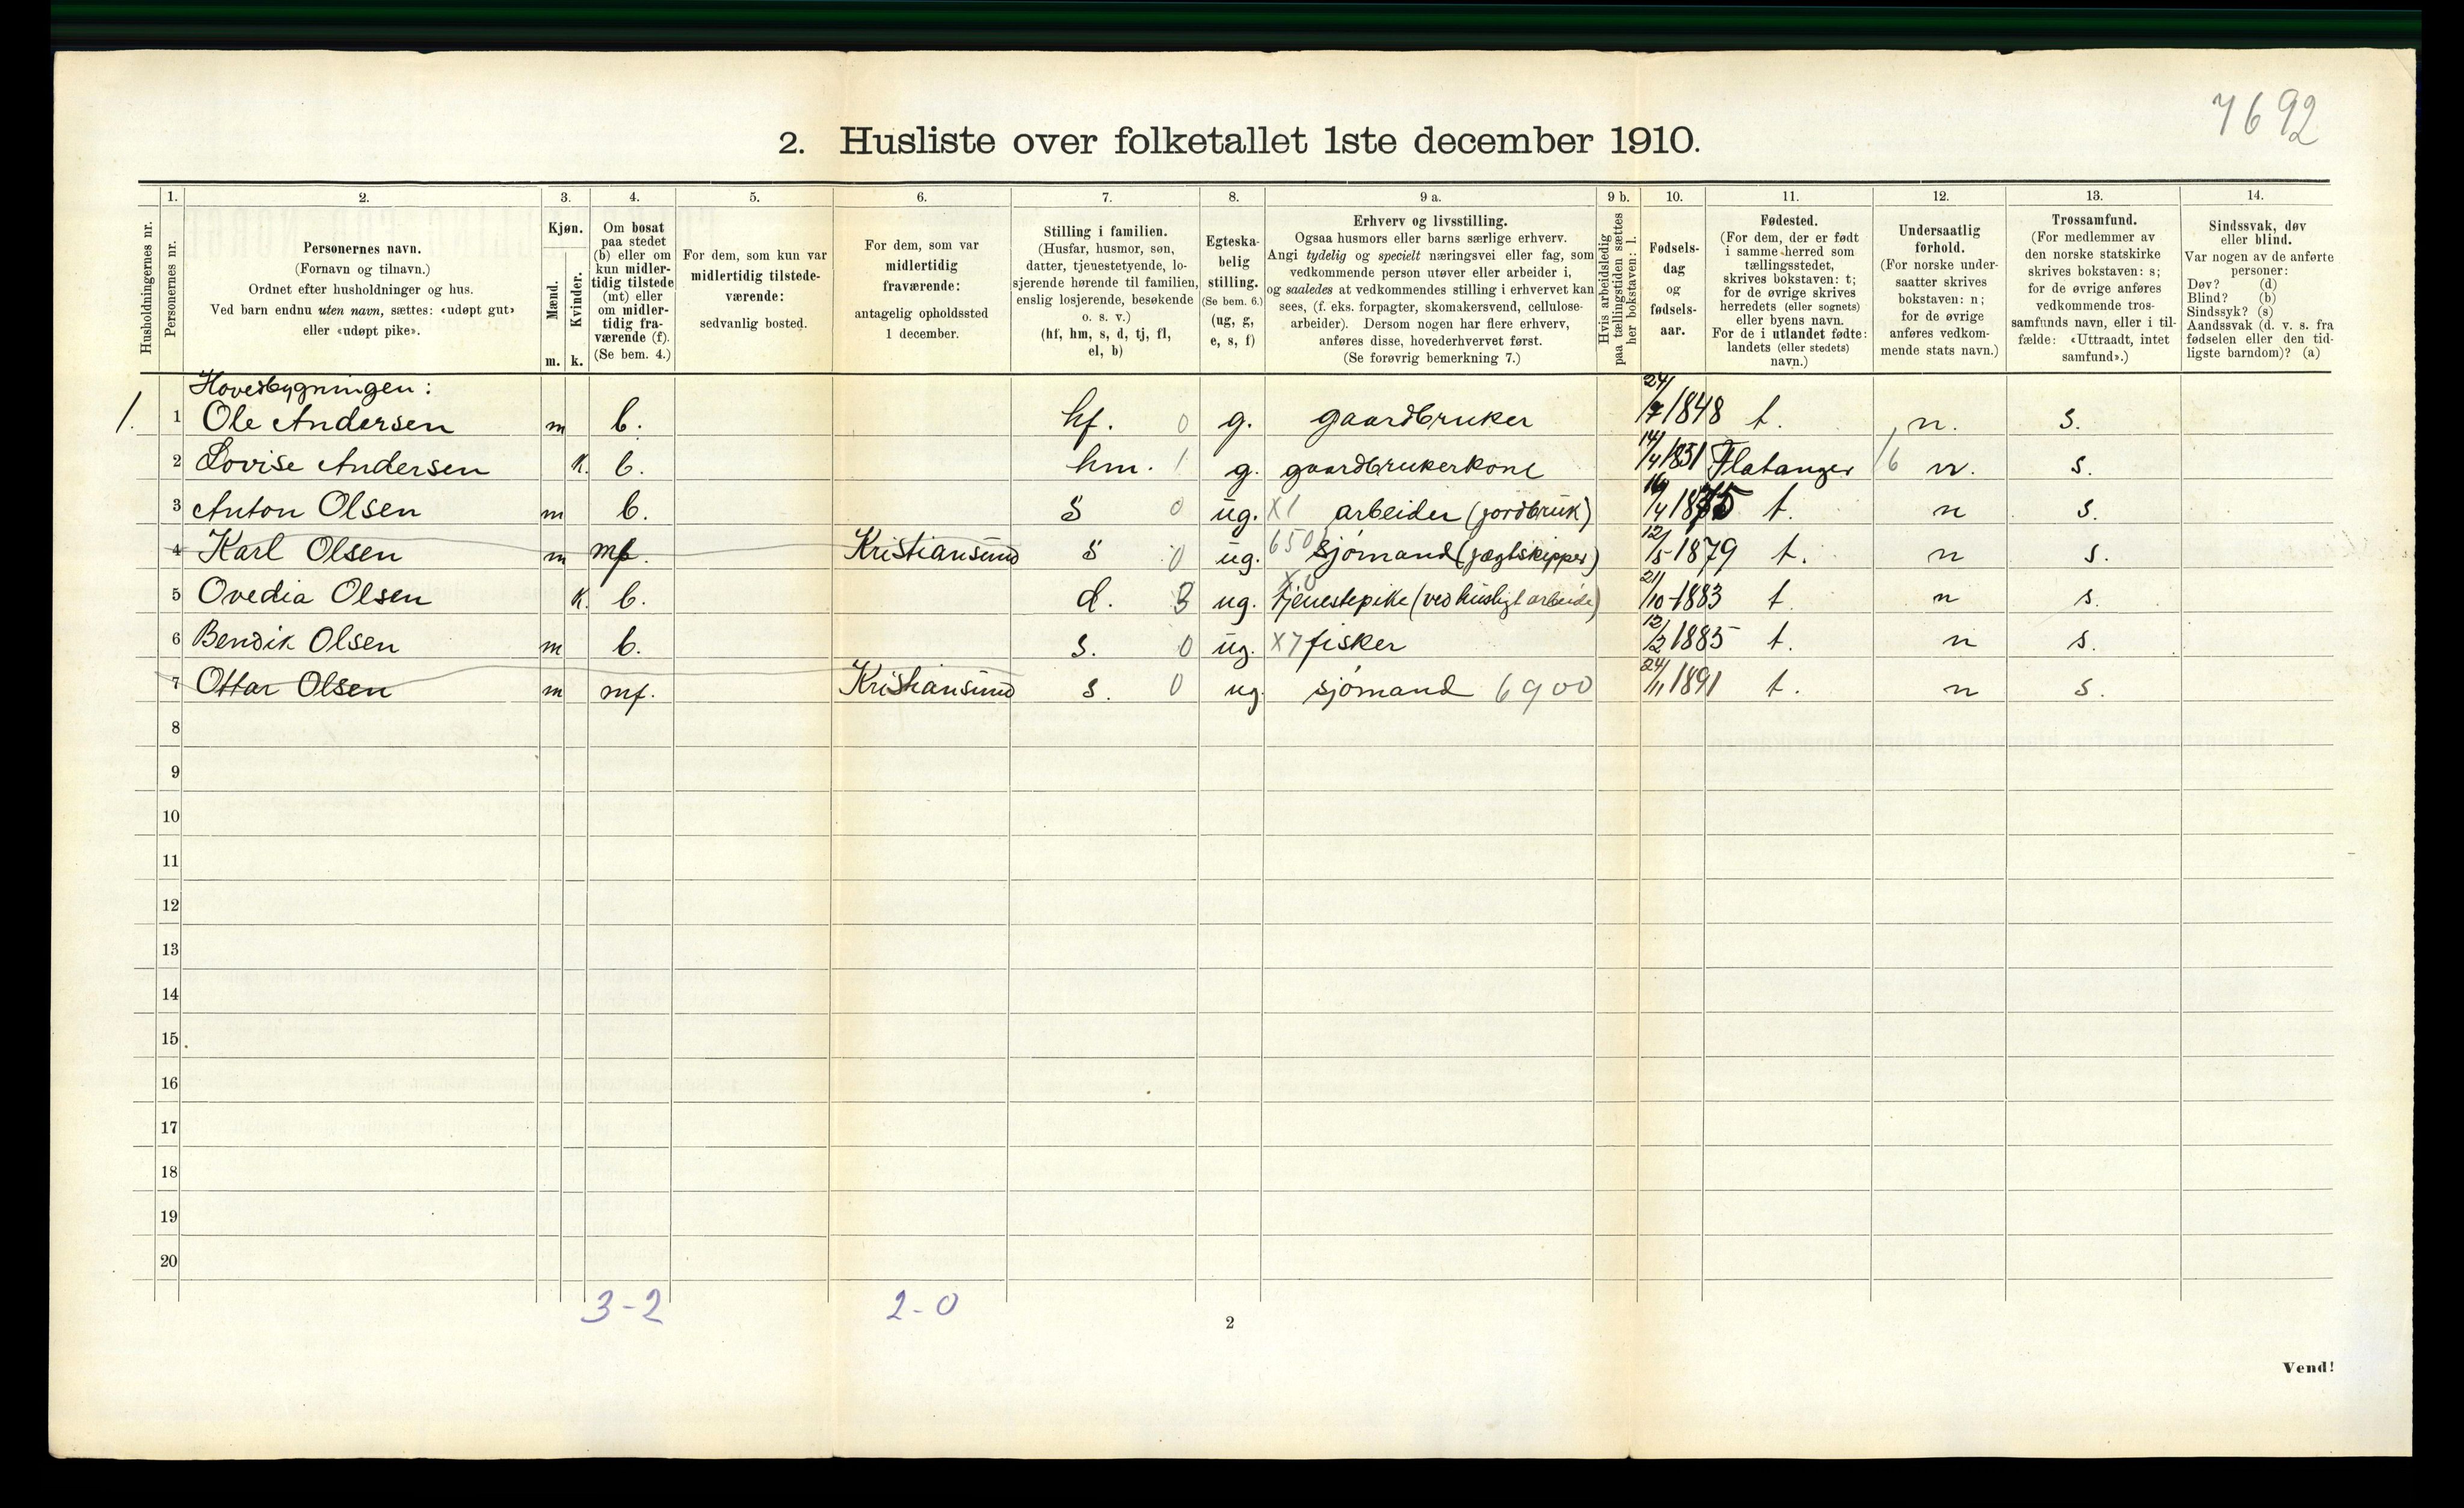 7692
2. Husliste over folketallet 1ste december 1910.
Husholdningernes nr.
1.
Personernes nr.
2.
Personernes navn.
(Fornavn og tilnavn.)
Ordnet efter husholdninger og hus.
Ved barn endnu uten navn, sættes: «udøpt gut»
eller «udøpt pike».
3.
Kjøn.
Mænd.
Kvinder.
m. k.
4.
Om bosat
paa stedet
(b) eller om
kun midler-
tidig tilstede
(mt) eller
om midler-
tidig fra-
værende (f).
(Se bem. 4.)
5.
For dem, som kun var
midlertidig tilstede-
værende:
sedvanlig bosted.
6.
For dem, som var
midlertidig
fraværende:
antagelig opholdssted
1 december.
7.
Stilling i familien.
(Husfar, husmor, søn,
datter, tjenestetyende, lo-
sjerende hørende til familien,
enslig losjerende, besøkende
o. s. v.)
(hf, hm, s, d, tj, fl,
el, b)
8.
Egteska-
belig
stilling.
(Se bem. 6.)
(ug, g,
e, s, f)
9 a.
Erhverv og livsstilling.
Ogsaa husmors eller barns særlige erhverv.
Angi tydelig og specielt næringsvei eller fag, som
vedkommende person utøver eller arbeider i,
og saaledes at vedkommendes stilling i erhvervet kan
sees, (f. eks. forpagter, skomakersvend, cellulose-
arbeider). Dersom nogen har flere erhverv,
anføres disse, hovederhvervet først.
(Se forøvrig bemerkning 7.)
9 b.
Hvis arbeidsledig
paa tællingstiden sættes
her bokstaven: l.
10.
Fødsels-
dag
og
fødsels-
aar.
11.
Fødested.
(For dem, der er født
i samme herred som
tællingsstedet,
skrives bokstaven: t;
for de øvrige skrives
herredets (eller sognets)
eller byens navn.
For de i utlandet fødte:
landets (eller stedets)
navn.)
12.
Undersaatlig
forhold.
(For norske under-
saatter skrives
bokstaven: n;
for de øvrige
anføres vedkom-
mende stats navn.)
13.
Trossamfund.
(For medlemmer av
den norske statskirke
skrives bokstaven: s;
for de øvrige anføres
vedkommende tros-
samfunds navn, eller i til-
fælde: «Uttraadt, intet
samfund».)
14.
Sindssvak, døv
eller blind.
Var nogen av de anførte
personer:
Døv? (d)
Blind? (b)
Sindssyk? (s)
Aandssvak (d. v. s. fra
fødselen eller den tid-
ligste barndom)? (a)
Hovedbygningen:
1. 1 Ole Andersen m b. hf. 0 g. gaardbruker 24/7 1848 t. n. s.
2 Lovise Andersen k. b. hm. 1 g. gaardbrukerkone 14/4 1851 Flatanger 16 n. s.
3 Anton Olsen m b. s 0 ug. X1 arbeider (jordbruk) 16/4 1875 t. n s.
4 Karl Olsen m mf. Kristiansund s 0 ug. 650 sjømand (jægtskipper) 12/5 1879 t. n s.
5 Ovedia Olsen k. b. d. 3 ug. X0 tjenestepike (ved husligt arbeide) 21/10 1883 t. n s.
6 Bendik Olsen m b. s. 0 ug. X7 fisker 12/2 1885 t. n s.
7 Ottar Olsen m mf. Kristiansund s. 0 ug. sjømand 6900 24/11 1891 t. n s.
8
9
10
11
12
13
14
15
16
17
18
19
20
3-2 2-0
2
Vend!